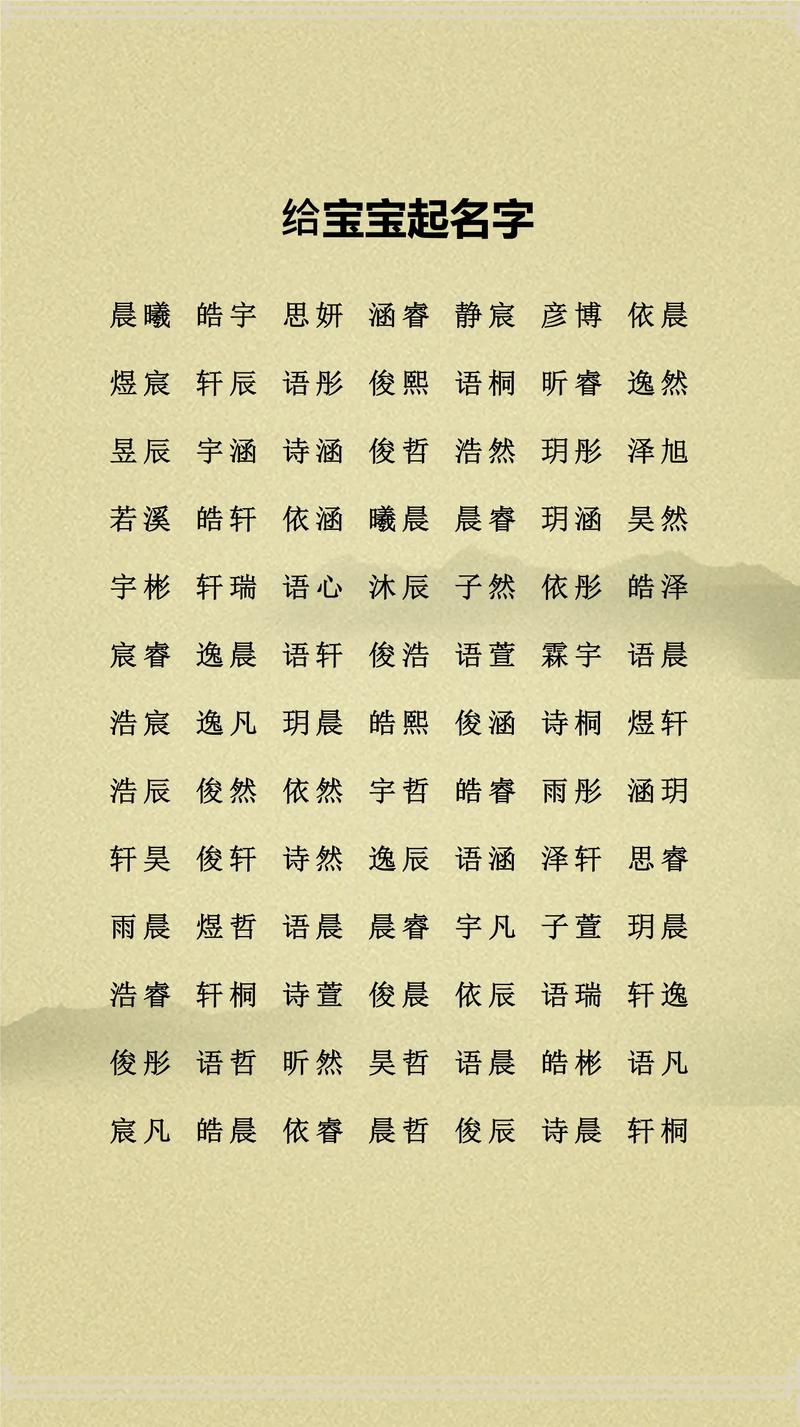 给宝宝起名字
晨曦 皓宇 思妍 涵睿 静宸 彦博 依晨
煜宸 轩辰 语彤 俊熙 语桐 昕睿 逸然
昱辰 宇涵 诗涵 俊哲 浩然 玥彤 泽旭
若溪 皓轩 依涵 曦晨 晨睿 玥涵 昊然
宇彬 轩瑞 语心 沐辰 子然 依彤 皓泽
宸睿 逸晨 语轩 俊浩 语萱 霖宇 语晨
浩宸 逸凡 玥晨 皓熙 俊涵 诗桐 煜轩
浩辰 俊然 依然 宇哲 皓睿 雨彤 涵玥
轩昊 俊轩 诗然 逸辰 语涵 泽轩 思睿
雨晨 煜哲 语晨 晨睿 宇凡 子萱 玥晨
浩睿 轩桐 诗萱 俊晨 依辰 语瑞 轩逸
俊彤 语哲 昕然 昊哲 语晨 皓彬 语凡
宸凡 皓晨 依睿 晨哲 俊辰 诗晨 轩桐